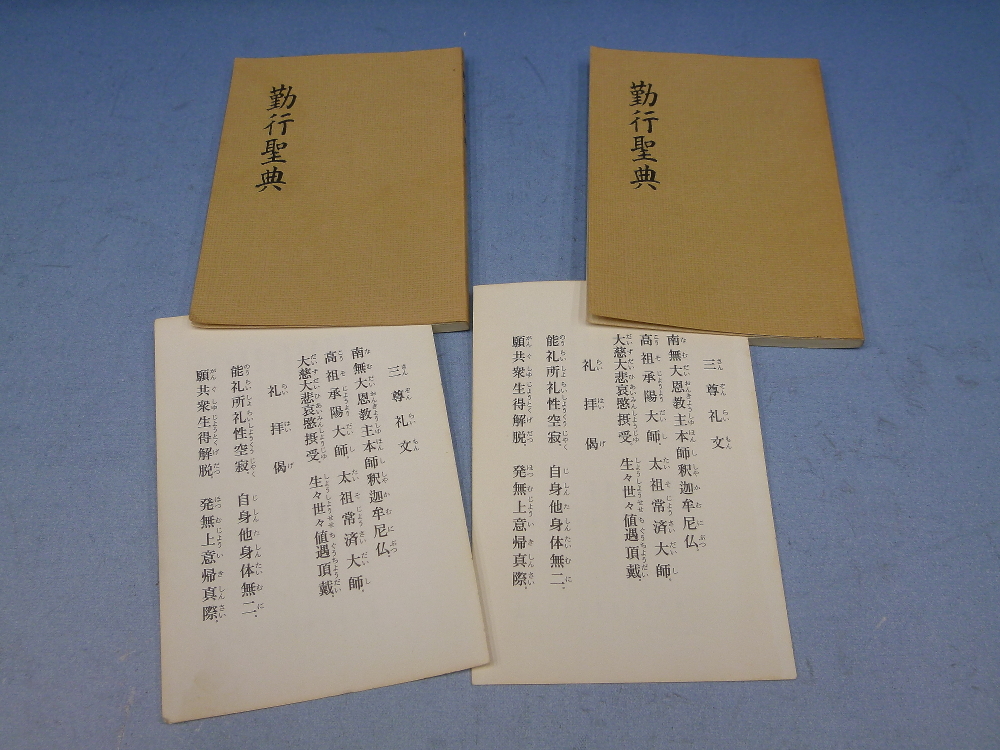 勤行聖典
勤行聖典
三尊礼文
南無大恩教主本師釈迦牟尼仏。
高祖承陽大師。太祖常済大師。
大慈大悲哀愍摂受。生々世々値遇頂戴。
礼拝偈
能礼所礼性空寂。自身他身体無二。
願共衆生得解脱。発無上意帰真際。
三尊礼文
南無大恩教主本師釈迦牟尼仏。
高祖承陽大師。太祖常済大師。
大慈大悲哀愍摂受。生々世々値遇頂戴。
礼拝偈
能礼所礼性空寂。自身他身体無二。
願共衆生得解脱。発無上意帰真際。